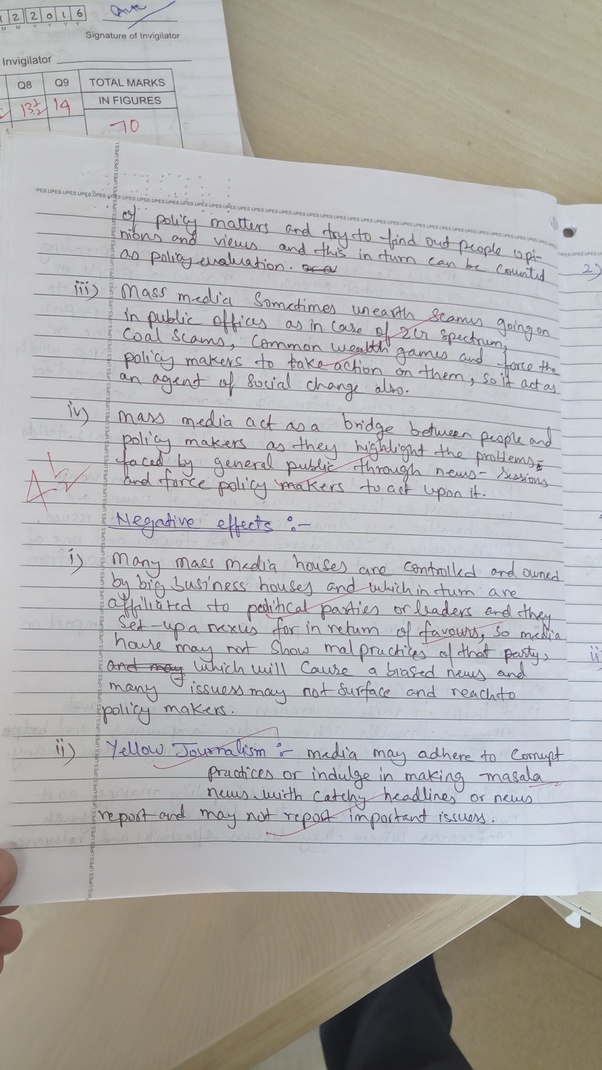 1 2 2 0 1 6
Signature of Invigilator
Invigilator
Q8 Q9 TOTAL MARKS
13½ 14 IN FIGURES
70
of policy matters and try to find out people opi-
nions and views and this in turn can be counted
as policy evaluation.
iii) Mass media sometimes unearth scams going on
in public offices as in case of 2G spectrum,
coal scams, common wealth games and force the
policy makers to take action on them, so it act as
an agent of social change also.
iv) Mass media act as a bridge between people and
policy makers as they highlight the problems
faced by general public through news-sessions
and force policy makers to act upon it.
Negative effects :-
i) Many mass media houses are controlled and owned
by big business houses and which in turn are
affiliated to political parties or leaders and they
set-up a nexus for in return of favours, so media
house may not show malpractices of that party,
and may which will cause a biased news and
many issuess may not surface and reach to
policy makers.
ii) Yellow Journalism :- media may adhere to corrupt
practices or indulge in making masala
news with catchy headlines or news
report and may not report important issuess.
2)
ii